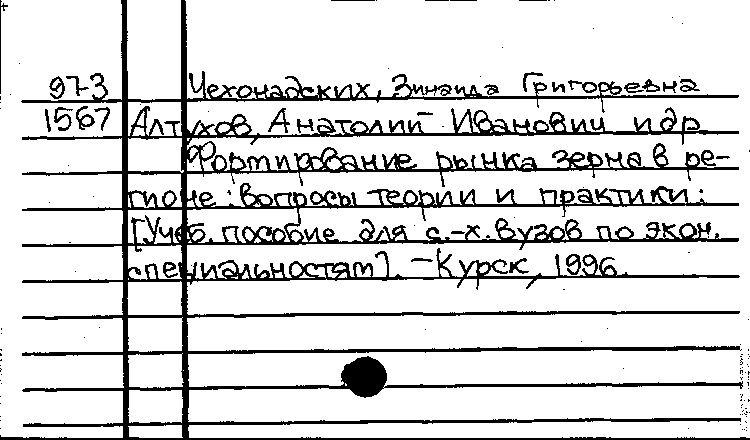 97-3 Чехонадских, Зинаида Григорьевна
1567 Алтухов, Анатолий Иванович и др.
Формирование рынка зерна в ре-
гионе: вопросы теории и практики:
[Учеб. пособие для с.-х. вузов по экон.
специальностям]. - Курск, 1996.